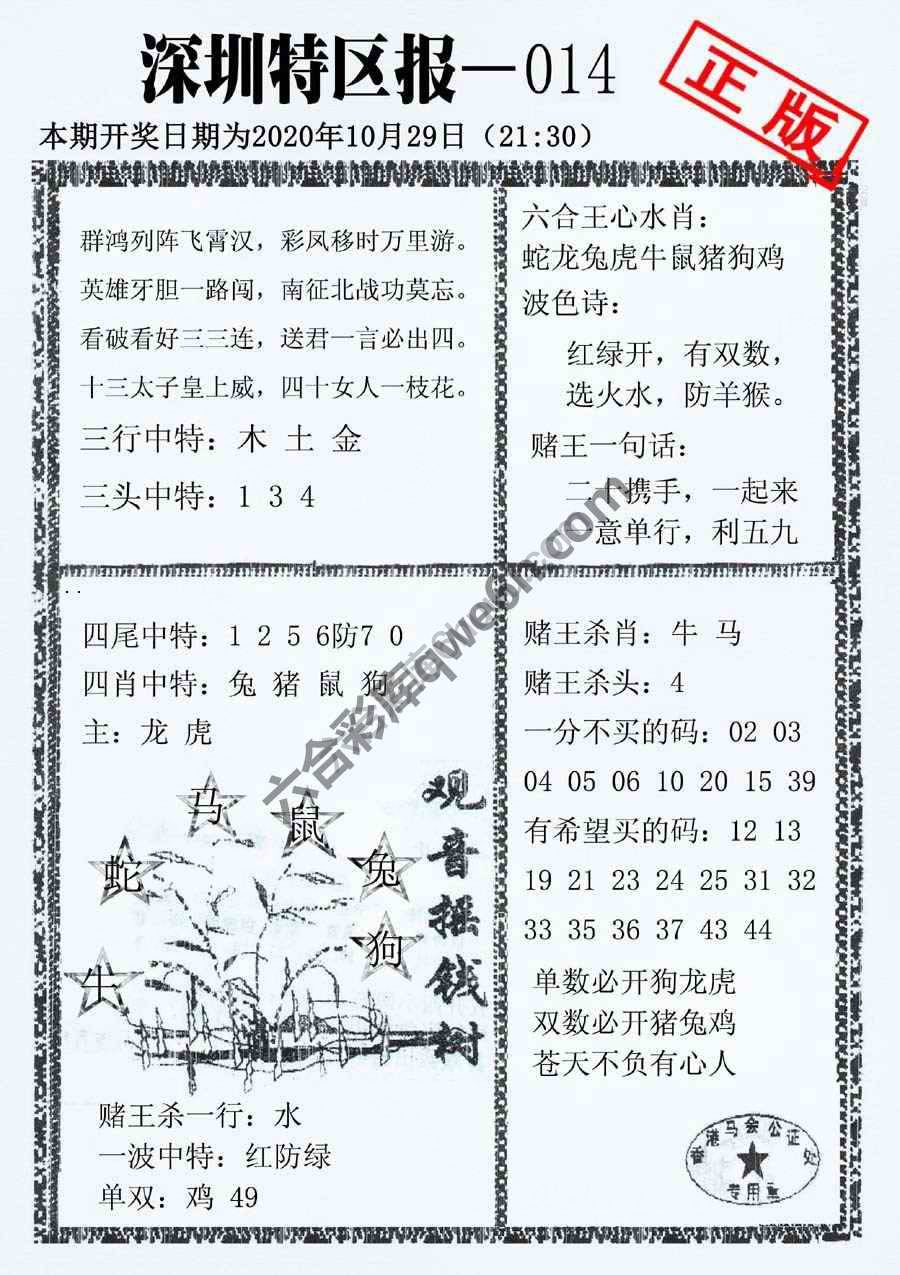 深圳特区报—014
正版
本期开奖日期为2020年10月29日（21:30）
群鸿列阵飞霄汉，彩凤移时万里游。
英雄牙胆一路闯，南征北战功莫忘。
看破看好三三连，送君一言必出四。
十三太子皇上威，四十女人一枝花。
三行中特：木 土 金
三头中特：1 3 4
六合王心水肖：
蛇龙兔虎牛鼠猪狗鸡
波色诗：
红绿开，有双数，
选火水，防羊猴。
赌王一句话：
二十携手，一起来
一意单行，利五九
四尾中特：1 2 5 6防7 0
四肖中特：兔 猪 鼠 狗
主：龙 虎
马
鼠
蛇
兔
狗
牛
观音摇钱树
赌王杀一行：水
一波中特：红防绿
单双：鸡 49
赌王杀肖：牛 马
赌王杀头：4
一分不买的码：02 03
04 05 06 10 20 15 39
有希望买的码：12 13
19 21 23 24 25 31 32
33 35 36 37 43 44
单数必开狗龙虎
双数必开猪兔鸡
苍天不负有心人
香港马会公证处
专用章
六合彩库qwe6h.com